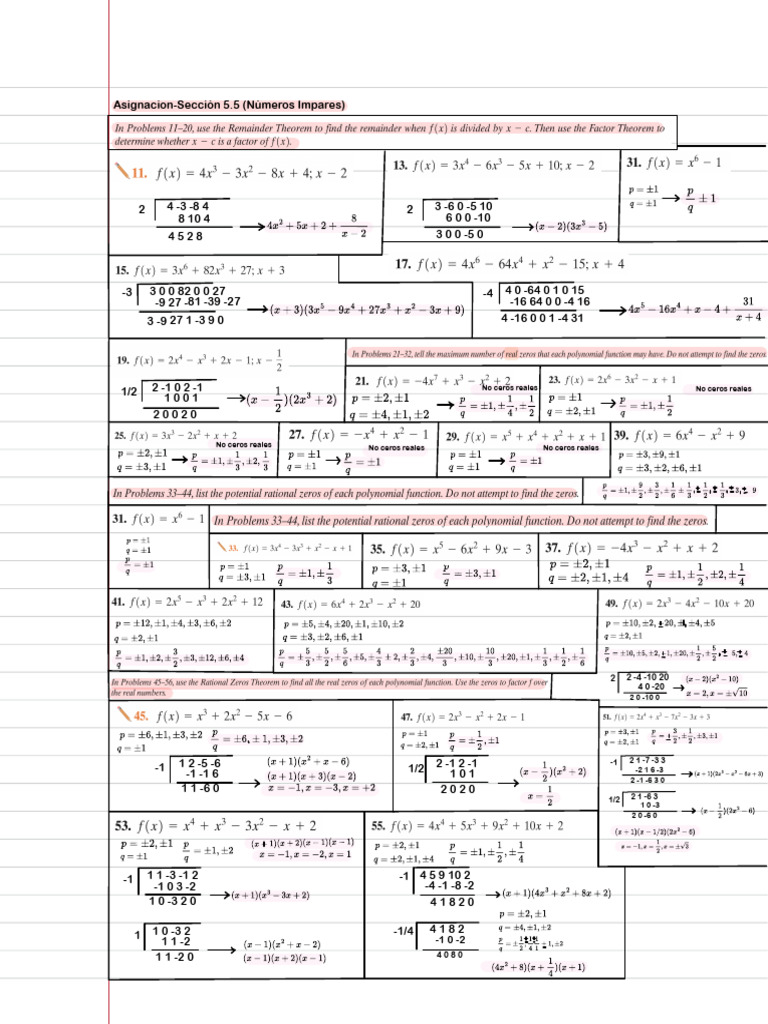 Asignacion-Sección 5.5 (Números Impares)
In Problems 11–20, use the Remainder Theorem to find the remainder when f(x) is divided by x − c. Then use the Factor Theorem to
determine whether x − c is a factor of f(x).
11. f(x) = 4x³ − 3x² − 8x + 4; x − 2
2 4 -3 -8 4
8 10 4
4 5 2 8
4x² + 5x + 2 + 8/(x − 2)
13. f(x) = 3x⁴ − 6x³ − 5x + 10; x − 2
2 3 -6 0 -5 10
6 0 0 -10
3 0 0 -5 0
(x − 2)(3x³ − 5)
31. f(x) = x⁶ − 1
p = ±1
q = ±1
p/q ± 1
15. f(x) = 3x⁶ + 82x³ + 27; x + 3
-3 3 0 0 82 0 0 27
-9 27 -81 -39 -27
3 -9 27 1 -3 9 0
(x + 3)(3x⁵ − 9x⁴ + 27x³ + x² − 3x + 9)
17. f(x) = 4x⁶ − 64x⁴ + x² − 15; x + 4
-4 4 0 -64 0 1 0 15
-16 64 0 0 -4 16
4 -16 0 0 1 -4 31
4x⁵ − 16x⁴ + x − 4 + 31/(x + 4)
19. f(x) = 2x⁴ − x³ + 2x − 1; x − 1/2
1/2 2 -1 0 2 -1
1 0 0 1
2 0 0 2 0
(x − 1/2)(2x³ + 2)
In Problems 21–32, tell the maximum number of real zeros that each polynomial function may have. Do not attempt to find the zeros.
21. f(x) = −4x⁷ + x³ − x² + 2
No ceros reales
p = ±2, ±1
q = ±4, ±1, ±2
p/q = ±1, ±1/4, ±1/2
23. f(x) = 2x⁶ − 3x² − x + 1
No ceros reales
p = ±1
q = ±2, ±1
p/q = ±1, ±1/2
25. f(x) = 3x³ − 2x² + x + 2
No ceros reales
p = ±2, ±1
q = ±3, ±1
p/q = ±1, ±1/3, ±2, ±2/3
27. f(x) = −x⁴ + x² − 1
No ceros reales
p = ±1
q = ±1
p/q = ±1
29. f(x) = x⁵ + x⁴ + x² + x + 1
No ceros reales
p = ±1
q = ±1
p/q = ±1
39. f(x) = 6x⁴ − x² + 9
p = ±3, ±9, ±1
q = ±3, ±2, ±6, ±1
In Problems 33–44, list the potential rational zeros of each polynomial function. Do not attempt to find the zeros.
31. f(x) = x⁶ − 1
p = ±1
q = ±1
p/q = ±1
In Problems 33–44, list the potential rational zeros of each polynomial function. Do not attempt to find the zeros.
33. f(x) = 3x⁴ − 3x³ + x² − x + 1
p = ±1
q = ±3, ±1
p/q = ±1, ±1/3
35. f(x) = x⁵ − 6x² + 9x − 3
p = ±3, ±1
q = ±1
p/q = ±3, ±1
37. f(x) = −4x³ − x² + x + 2
p = ±2, ±1
q = ±2, ±1, ±4
p/q = ±1, ±1/2, ±2, ±1/4
41. f(x) = 2x⁵ − x³ + 2x² + 12
p = ±12, ±1, ±4, ±3, ±6, ±2
q = ±2, ±1
p/q = ±1, ±2, ±3/2, ±3, ±12, ±6, ±4
43. f(x) = 6x⁴ + 2x³ − x² + 20
p = ±5, ±4, ±20, ±1, ±10, ±2
q = ±3, ±2, ±6, ±1
49. f(x) = 2x³ − 4x² − 10x + 20
p = ±10, ±2, ±20, ±1, ±4, ±5
q = ±2, ±1
2 2 -4 -10 20
4 0 -20
2 0 -10 0
(x − 2)(x² − 10)
x = 2, x = ±√10
In Problems 45-56, use the Rational Zeros Theorem to find all the real zeros of each polynomial function. Use the zeros to factor f over
the real numbers.
45. f(x) = x³ + 2x² − 5x − 6
p = ±6, ±1, ±3, ±2
q = ±1
p/q = ±6, ±1, ±3, ±2
-1 1 2 -5 -6
-1 -1 6
1 1 -6 0
(x + 1)(x² + x − 6)
(x + 1)(x + 3)(x − 2)
x = −1, x = −3, x = +2
47. f(x) = 2x³ − x² + 2x − 1
p = ±1
q = ±2, ±1
p/q = ±1/2, ±1
1/2 2 -1 2 -1
1 0 1
2 0 2 0
(x − 1/2)(x² + 2)
x = 1/2
51. f(x) = 2x⁴ + x³ − 7x² − 3x + 3
p = ±3, ±1
q = ±2, ±1
p/q = ±3/2, ±1/2, ±3, ±1
-1 2 1 -7 -3 3
-2 1 6 -3
2 -1 -6 3 0
(x + 1)(2x³ − x² − 6x + 3)
1/2 2 -1 -6 3
1 0 -3
2 0 -6 0
(x − 1/2)(2x² − 6)
(x + 1)(x − 1/2)(2x² − 6)
x = −1, x = 1/2, x = ±√3
53. f(x) = x⁴ + x³ − 3x² − x + 2
p = ±2, ±1
q = ±1
p/q = ±1, ±2
(x + 1)(x + 2)(x − 1)(x − 1)
x = −1, x = −2, x = 1
-1 1 1 -3 -1 2
-1 0 3 -2
1 0 -3 2 0
(x + 1)(x³ − 3x + 2)
1 1 0 -3 2
1 1 -2
1 1 -2 0
(x − 1)(x² + x − 2)
(x − 1)(x + 2)(x − 1)
55. f(x) = 4x⁴ + 5x³ + 9x² + 10x + 2
p = ±2, ±1
q = ±2, ±1, ±4
p/q = ±1, ±1/2, ±1/4
-1 4 5 9 10 2
-4 -1 -8 -2
4 1 8 2 0
(x + 1)(4x³ + x² + 8x + 2)
p = ±2, ±1
q = ±4, ±1, ±2
-1/4 4 1 8 2
-1 0 -2
4 0 8 0
(4x² + 8)(x + 1/4)(x + 1)